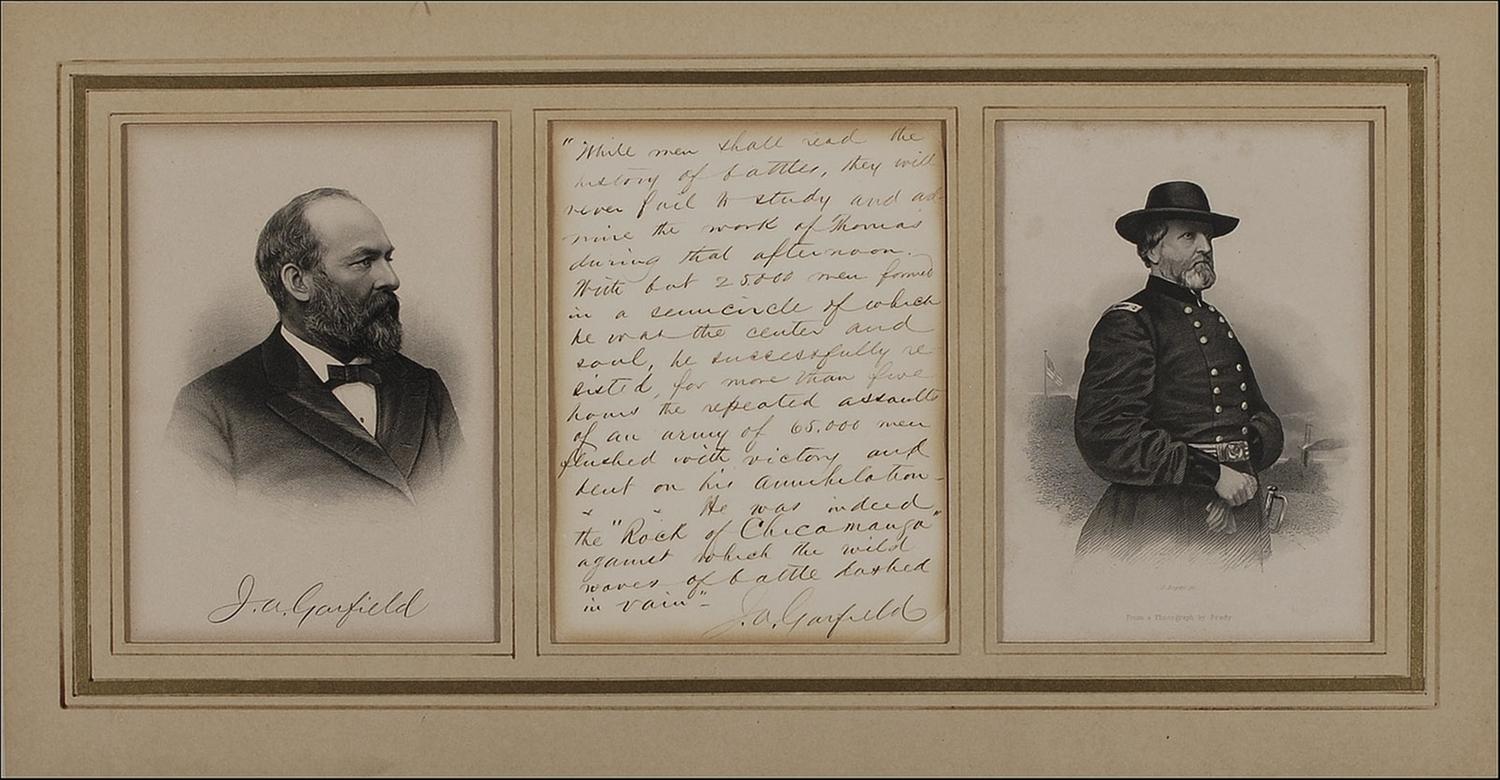 J. A. Garfield
"While men shall read the
history of battles, they will
never fail to study and ad-
mire the work of Thomas
during that afternoon.
With but 25.000 men formed
in a semicircle of which
he was the center and
soul, he successfully re
sisted, for more than five
hours the repeated assaults
of an army of 65.000 men
flushed with victory and
bent on his annihilation-
" " He was indeed
the "Rock of Chicamauga"
against which the wild
waves of battle dashed
in vain"-
J. A. Garfield
From a Photograph by Brady